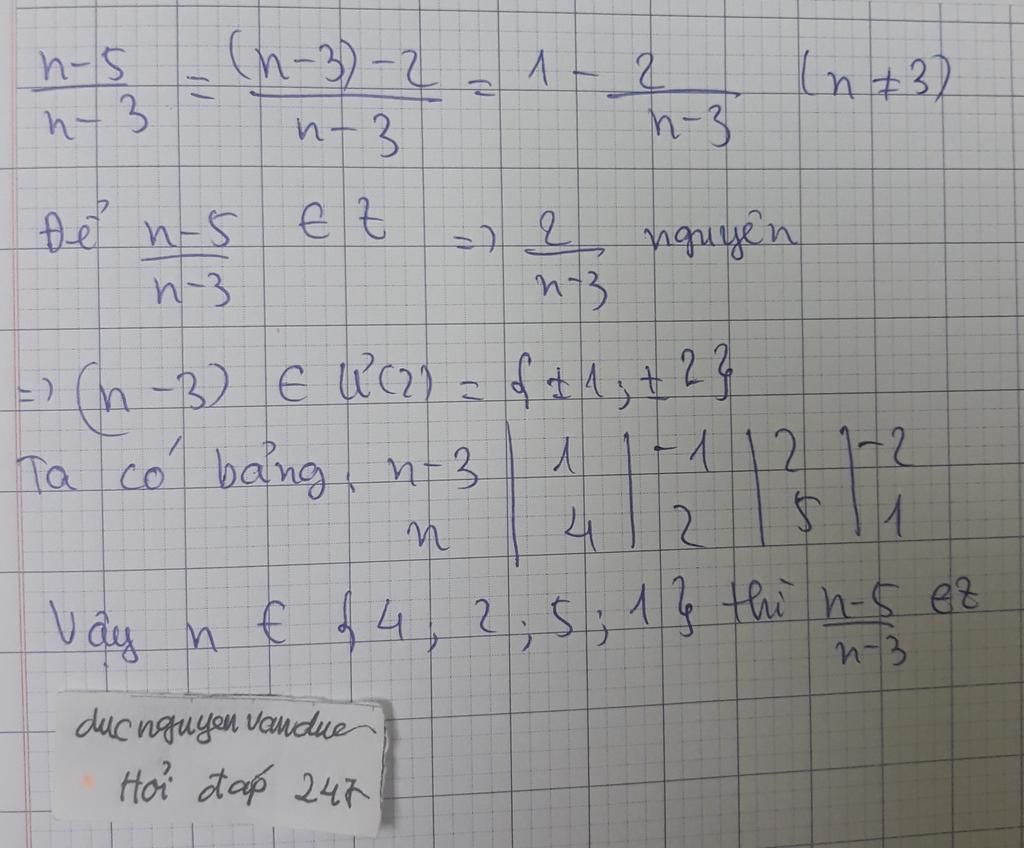 n-5/n-3 = (n-3)-2/n-3 = 1 - 2/n-3 (n ≠ 3)
Để n-5/n-3 ∈ Z => 2/n-3 nguyên
=> (n-3) ∈ Ư(2) = {±1; ±2}
Ta có bảng n-3 | 1 | -1 | 2 | -2
n | 4 | 2 | 5 | 1
Vậy n ∈ {4, 2; 5; 1} thì n-5/n-3 ∈ Z
ducnguyenvanduc
Hỏi đáp 247